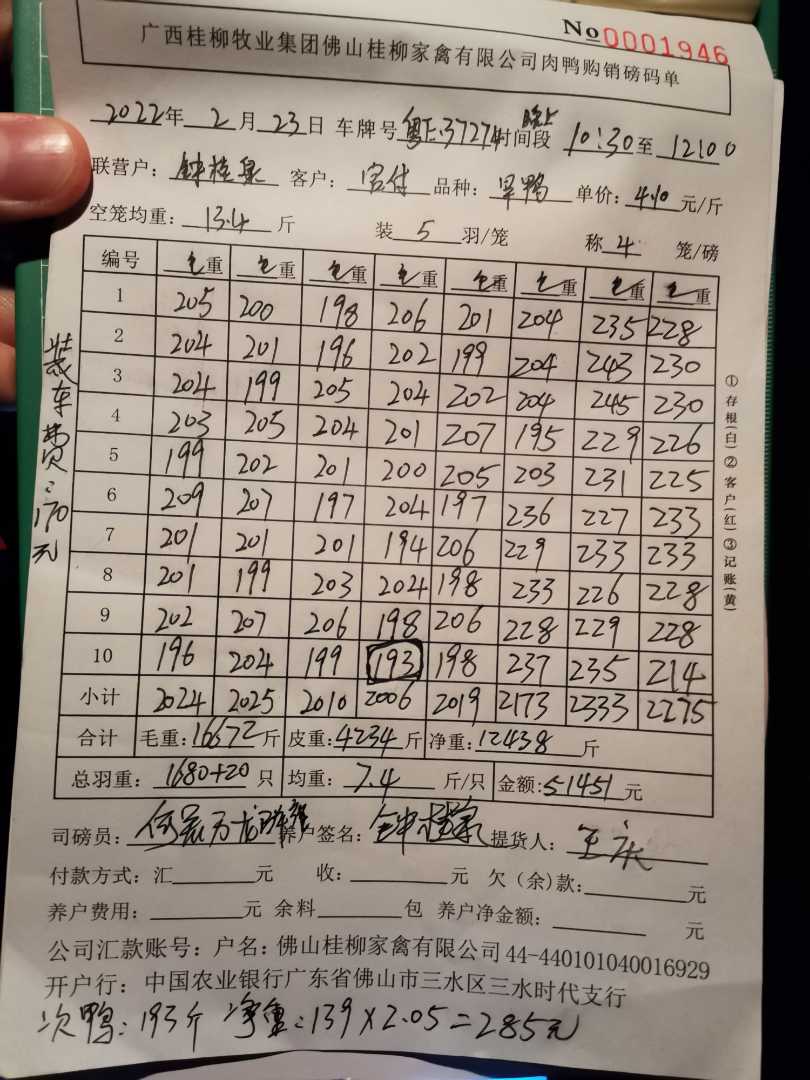 No 0001946
广西桂柳牧业集团佛山桂柳家禽有限公司肉鸭购销磅码单
2022年 2 月 23 日 车牌号 粤E·37274 时间段 晚上 10:30 至 12:00
联营户: 钟桂泉 客户: 官付 品种: 旱鸭 单价: 4.10 元/斤
空笼均重: 13.4 斤 装 5 羽/笼 称 4 笼/磅
编号 毛重 毛重 毛重 毛重 毛重 毛重 毛重 毛重
1 205 200 198 206 201 204 235 228
2 204 201 196 202 199 204 243 230
3 204 199 205 204 202 204 245 230
4 203 205 204 201 207 195 229 226
5 199 202 201 200 205 203 231 225
6 209 207 197 204 197 236 227 233
7 201 201 201 194 206 229 233 233
8 201 199 203 204 198 233 226 228
9 202 207 206 198 206 228 229 228
10 196 204 199 193 198 237 235 214
小计 2024 2025 2010 2006 2019 2173 2333 2275
合计 毛重: 16672 斤 皮重: 4234 斤 净重: 12438 斤
总羽重: 1680+20 只 均重: 7.4 斤/只 金额: 51451 元
司磅员: 养户签名: 钟桂泉 提货人:
付款方式: 汇 元 收: 元 欠(余)款: 元
养户费用: 元 余料 包 养户净金额: 元
公司汇款账号: 户名: 佛山桂柳家禽有限公司 44-440101040016929
开户行: 中国农业银行广东省佛山市三水区三水时代支行
次鸭: 193斤 净重: 139×2.05=285元
装车费: 170元
①存根(白)②客户(红)③记账(黄)